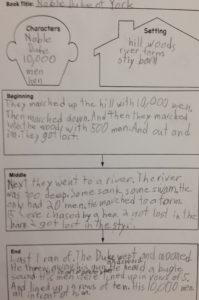 Book Title: Noble Duke of York
Characters
Noble
Duke
10,000
men
hen
Setting
hill, woods
river, farm
sty, barn
Beginning
They marched up the hill with 10,000 men.
Then marched down. And then they marched
the woods with 500 men. And out and
they got lost.
Middle
Next they went to a river. The river
was too deep. Some sank, some swam. He
only had 20 men. He marched to a farm.
were chased by a hen. 2 got lost in the
barn 2 got lost in the sty.
End
Last 1 ran of. The Duke wept and
He heard a bugle
sound. men lined up in rows of 5.
And lined up in rows of ten. His 10,000 men
all in front of him.